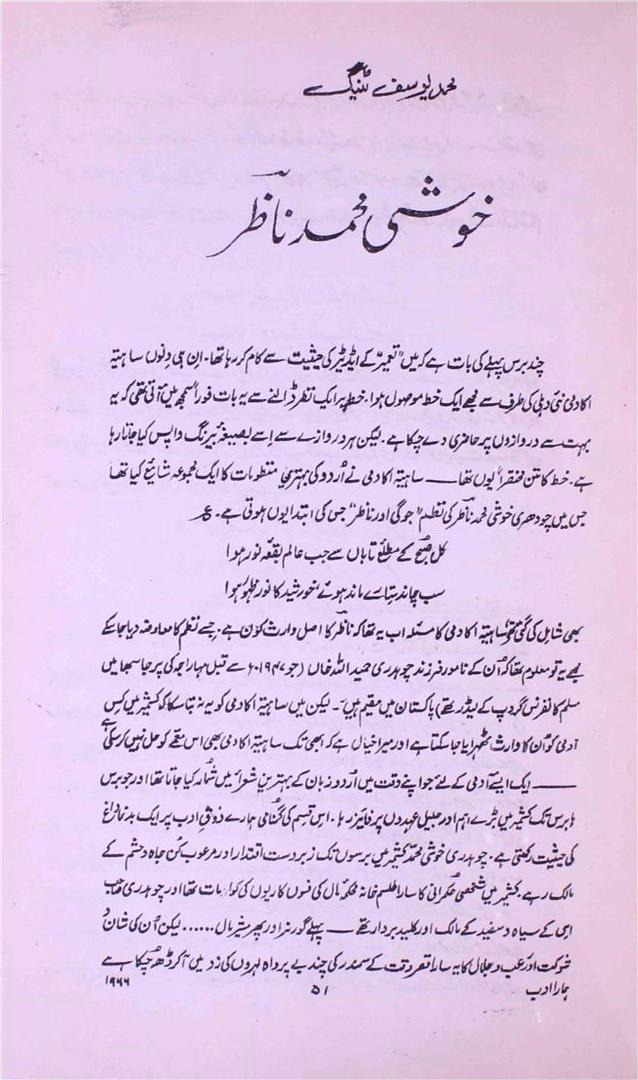 محمد یوسف ٹینگ
خوشی محمد ناظر
چند برس پہلے کی بات ہے کہ میں "تعمیر" کے ایڈیٹر کی حیثیت سے کام کر رہا تھا۔ ان ہی دنوں ساہتیہ
اکادمی نئی دہلی کی طرف سے مجھے ایک خط موصول ہوا۔ خط پر ایک نظر ڈالنے سے یہ بات فوراً سمجھ میں آتی تھی کہ یہ
بہت سے دروازوں پر حاضری دے چکا ہے۔ لیکن ہر دروازے سے اسے بصیغۂ بیرنگ واپس کیا جاتا رہا
ہے۔ خط کا متن مختصراً یوں تھا ــــ ساہتیہ اکادمی نے اُردو کی بہترین منظومات کا ایک مجموعہ شائع کیا تھا
جس میں چودھری خوشی محمد ناظر کی نظم "جوگی اور ناظر" جس کی ابتدا یوں ہوتی ہے۔ ؏
کل صبح کے مطلع تاباں سے جب عالم بقعہ نور ہوا
سب چاند ستارے ماند ہوئے خورشید کا نور ظہور ہوا
بھی شامل کی گئی تھی۔ ساہتیہ اکادمی کا مسئلہ اب یہ تھا کہ ناظر کا اصل وارث کون ہے۔ جسے نظم کا معاوضہ دیا جا سکے
مجھے یہ تو معلوم تھا کہ اُن کے نامور فرزند چوہدری حمید اللہ خاں (جو ۱۹۴۷ء سے قبل مہاراجہ کی پرجا سبھا میں
مسلم کانفرنس گروپ کے لیڈر تھے) پاکستان میں مقیم ہیں۔ لیکن میں ساہتیہ اکادمی کو یہ نہ بتا سکا کہ کشمیر میں کس
آدمی کو اُن کا وارث ٹھہرایا جا سکتا ہے اور میرا خیال ہے کہ ابھی تک ساہتیہ اکادمی بھی اس معمے کو حل نہیں کر سکی ہے
ــــ ایک ایسے آدمی کے لئے جو اپنے وقت میں اُردو زبان کے بہترین شعرا میں شمار کیا جاتا تھا اور جو برس
ہا برس تک کشمیر میں بڑے اہم اور جلیل عہدوں پر فائز رہا۔ اس قسم کی گمنامی ہمارے ذوقِ ادب پر ایک بدنما داغ
کی حیثیت رکھتی ہے۔ چوہدری خوشی محمد کشمیر میں برسوں تک زبردست اقتدار اور مرعوب کُن جاہ و حشم کے
مالک رہے۔ کشمیر میں شخصی حکمرانی کا سارا طلسم خانہ محکمہ مال کی فسوں کاریوں کی کرامات تھا اور چوہدری صاحب
اسی کے سیاہ و سفید کے مالک اور کلید بردار تھے ــــ پہلے گورنر اور پھر مشیر مال ...... لیکن اُن کی شان و
شوکت اور رعب و جلال کا یہ سارا قصر وقت کے سمندر کی چند بے پرواہ لہروں کی زد میں آکر ڈھ چکا ہے
ہمارا ادب ۵۱ ۱۹۶۶